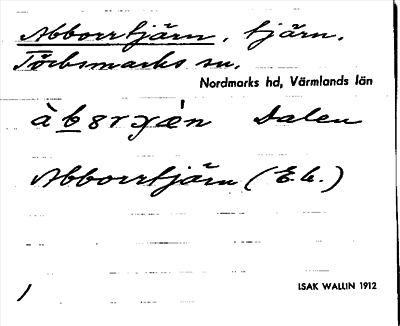 Abborrtjärn, tjärn.
Töcksmarks sn.
Nordmarks hd, Värmlands län
Dalen
Abborrtjärn (E.k.)
ISAK WALLIN 1912